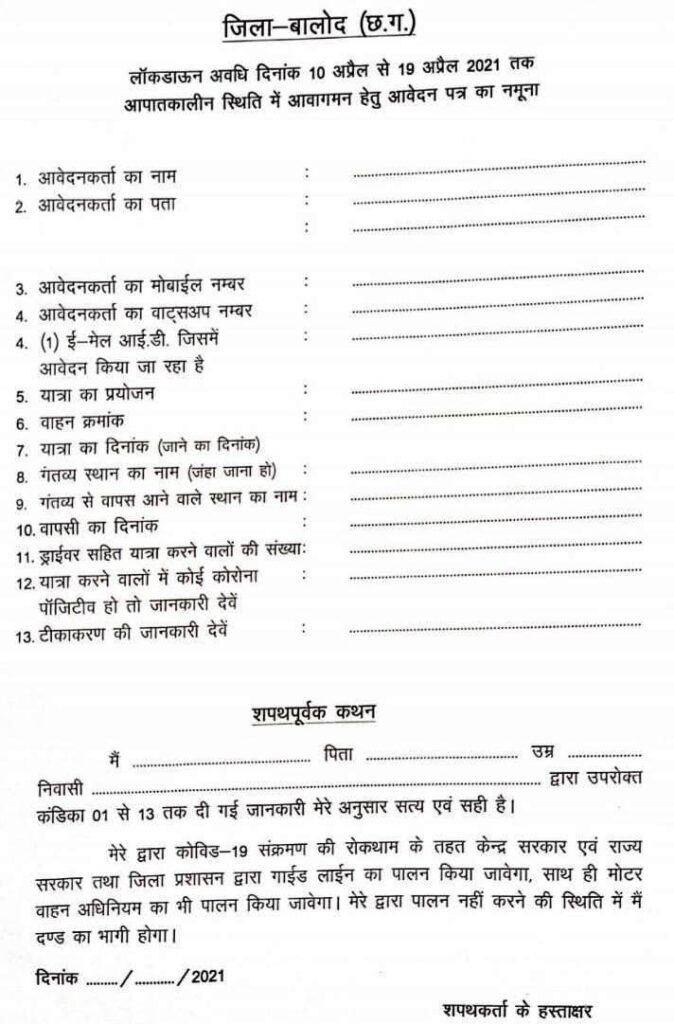 जिला–बालोद (छ.ग.)
लॉकडाऊन अवधि दिनांक 10 अप्रैल से 19 अप्रैल 2021 तक
आपातकालीन स्थिति में आवागमन हेतु आवेदन पत्र का नमूना
1. आवेदनकर्ता का नाम : ........................................
2. आवेदनकर्ता का पता : ........................................
: ........................................
3. आवेदनकर्ता का मोबाईल नम्बर : ........................................
4. आवेदनकर्ता का वाट्सअप नम्बर : ........................................
4. (1) ई–मेल आई.डी. जिसमें : ........................................
आवेदन किया जा रहा है
5. यात्रा का प्रयोजन : ........................................
6. वाहन क्रमांक : ........................................
7. यात्रा का दिनांक (जाने का दिनांक)
8. गंतव्य स्थान का नाम (जंहा जाना हो) : ........................................
9. गंतव्य से वापस आने वाले स्थान का नाम : ........................................
10. वापसी का दिनांक : ........................................
11. ड्राईवर सहित यात्रा करने वालों की संख्याः ........................................
12. यात्रा करने वालों में कोई कोरोना : ........................................
पॉजिटीव हो तो जानकारी देवें
13. टीकाकरण की जानकारी देवें : ........................................
शपथपूर्वक कथन
मैं .............................. पिता .............................. उम्र ..................
निवासी ............................................................ द्वारा उपरोक्त
कंडिका 01 से 13 तक दी गई जानकारी मेरे अनुसार सत्य एवं सही है।
मेरे द्वारा कोविड–19 संक्रमण की रोकथाम के तहत केन्द्र सरकार एवं राज्य
सरकार तथा जिला प्रशासन द्वारा गाईड लाईन का पालन किया जावेगा, साथ ही मोटर
वाहन अधिनियम का भी पालन किया जावेगा। मेरे द्वारा पालन नहीं करने की स्थिति में मैं
दण्ड का भागी होगा।
दिनांक ......../........../2021
शपथकर्ता के हस्ताक्षर